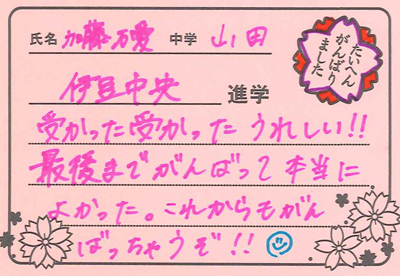 氏名 加藤万愛 中学 山田
たいへん
がんばり
ました
伊豆中央 進学
受かった受かった うれしい!!
最後までがんばって本当に
よかった。これからもがん
ばっちゃうぞ!!